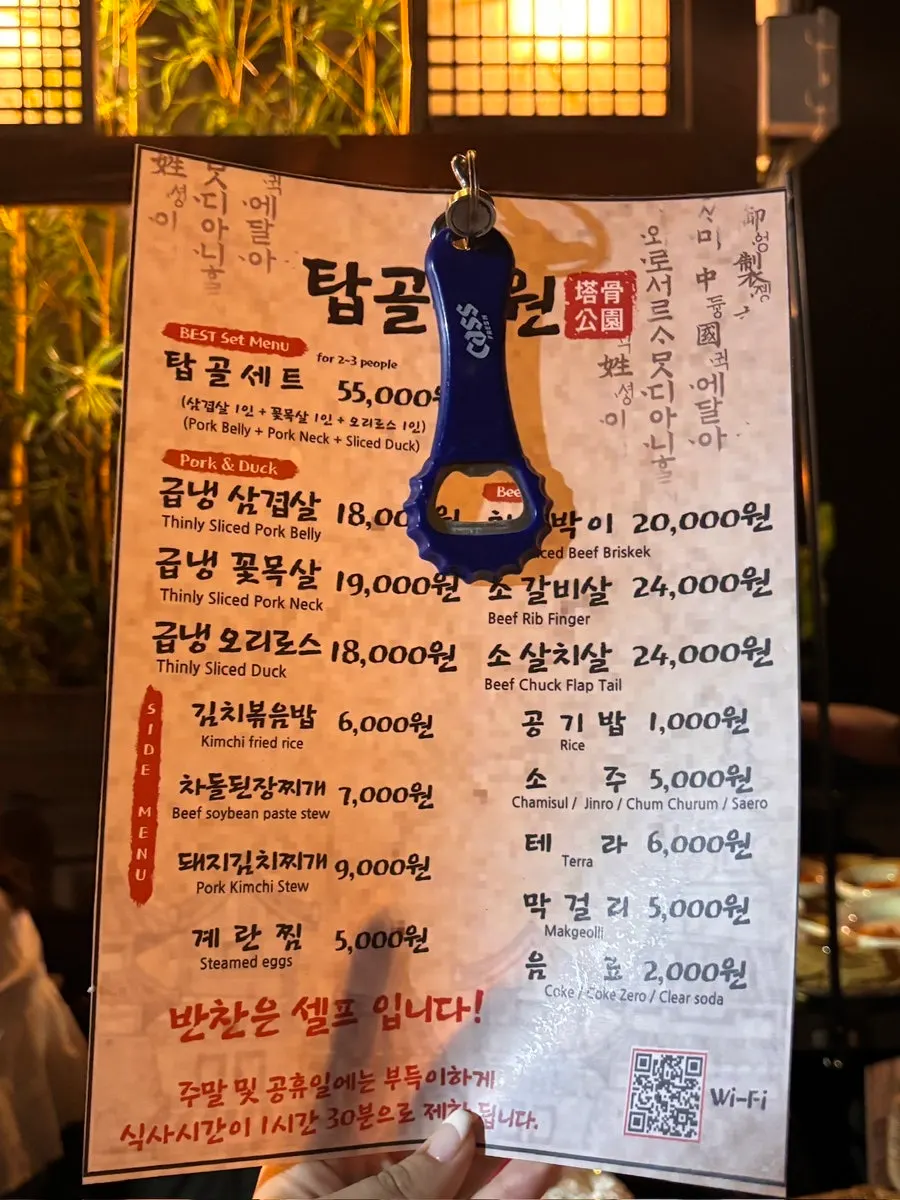 탑골 원
塔骨
公園
CASS
FRESH
BEST Set Menu
for 2~3 people
탑골세트 55,000
(삼겹살 1인 + 꽃목살 1인 + 오리로스 1인)
(Pork Belly + Pork Neck + Sliced Duck)
Pork & Duck
급냉 삼겹살 18,00 원
Thinly Sliced Pork Belly
급냉 꽃목살 19,000원
Thinly Sliced Pork Neck
급냉 오리로스 18,000원
Thinly Sliced Duck
Bee
박이 20,000원
ced Beef Briskek
소 갈비살 24,000원
Beef Rib Finger
소 살치살 24,000원
Beef Chuck Flap Tail
SIDE MENU
김치볶음밥 6,000원
Kimchi fried rice
차돌된장찌개 7,000원
Beef soybean paste stew
돼지김치찌개 9,000원
Pork Kimchi Stew
계란찜 5,000원
Steamed eggs
공기밥 1,000원
Rice
소주 5,000원
Chamisul / Jinro / Chum Churum / Saero
테라 6,000원
Terra
막걸리 5,000원
Makgeolli
음료 2,000원
Coke / Coke Zero / Clear soda
반찬은 셀프 입니다!
주말 및 공휴일에는 부득이하게
식사시간이 1시간 30분으로 제한 됩니다.
Wi-Fi